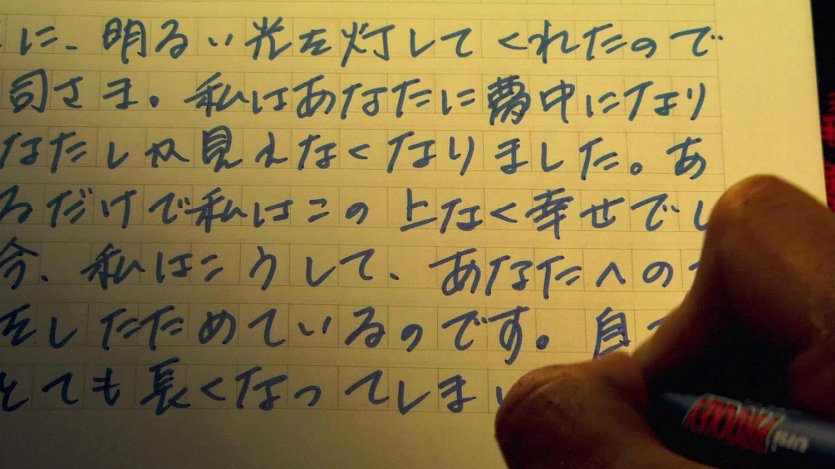 に、明るい光を灯してくれたので
司さま。私はあなたに夢中になり
なたしか見えなくなりました。あ
るだけで私はこの上なく幸せでし
今、私はこうして、あなたへの
をしたためているのです。自
とても長くなってしまい
uni